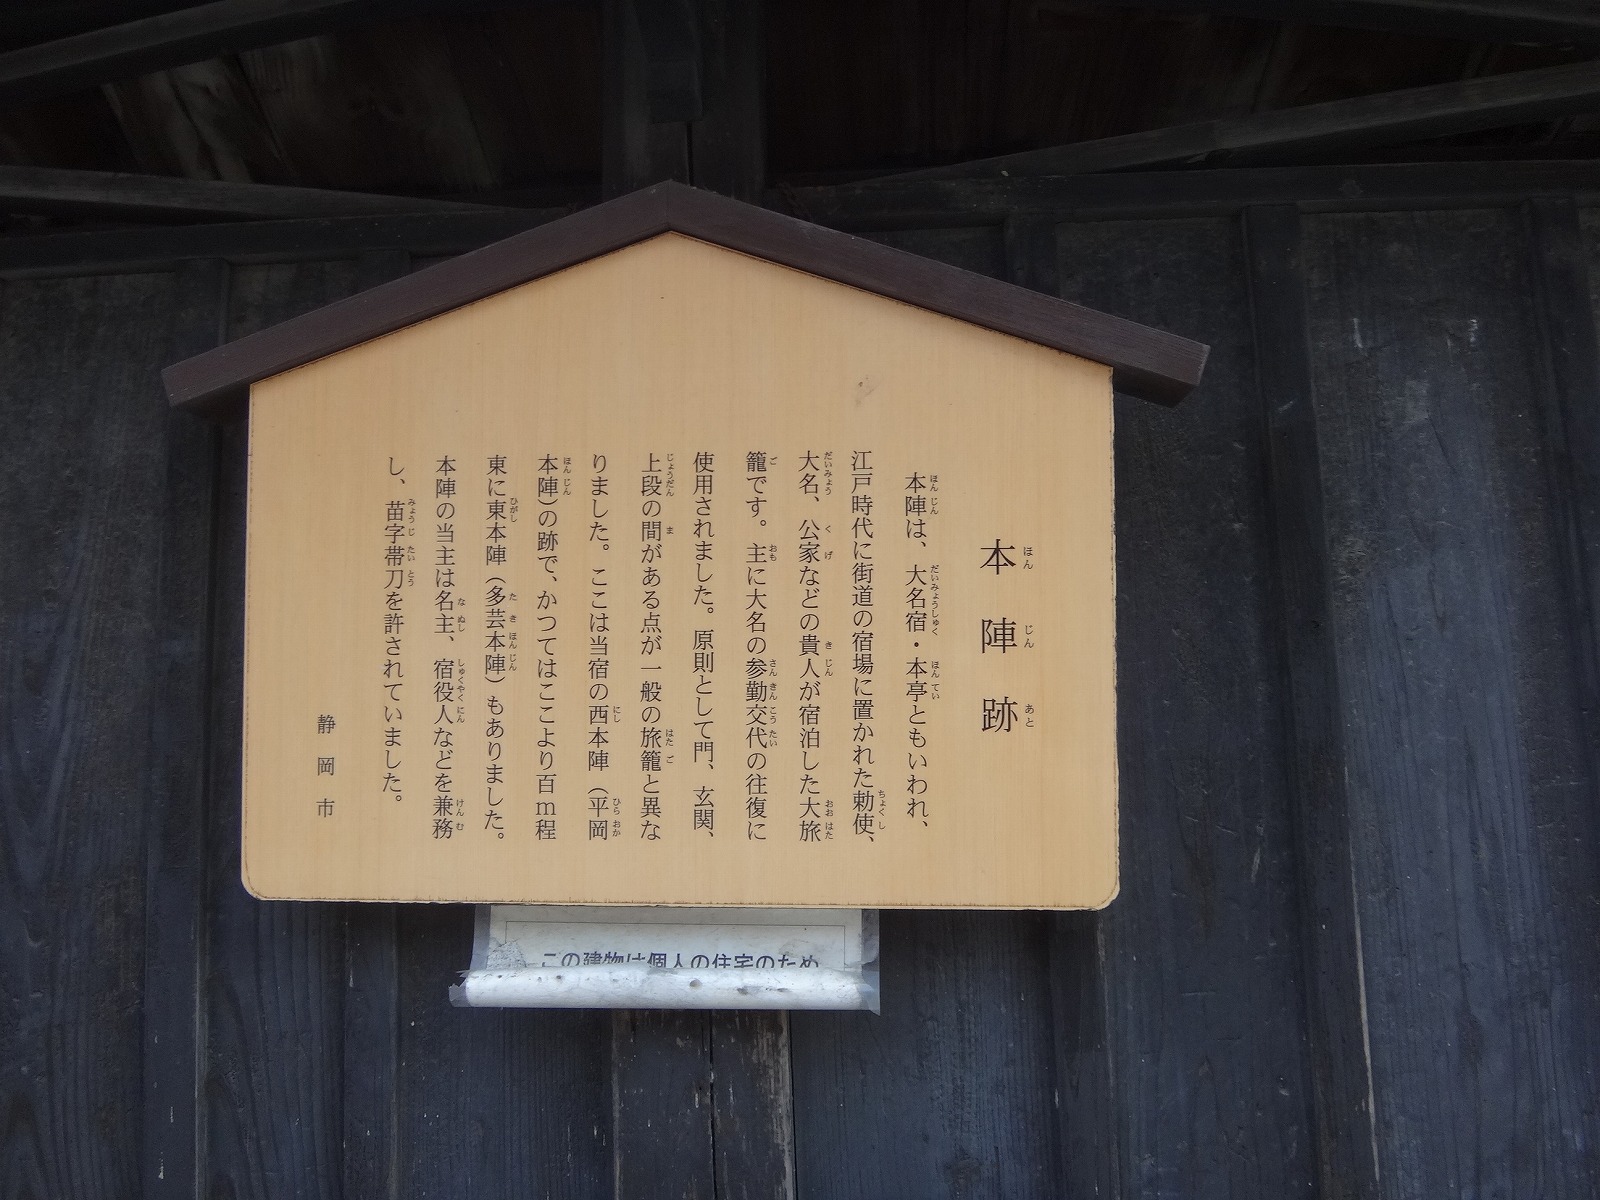 本陣跡
本陣は、大名宿・本亭ともいわれ、
江戸時代に街道の宿場に置かれた勅使、
大名、公家などの貴人が宿泊した大旅
籠です。主に大名の参勤交代の往復に
使用されました。原則として門、玄関、
上段の間がある点が一般の旅籠と異な
りました。ここは当宿の西本陣（平岡
本陣）の跡で、かつてはここより百ｍ程
東に東本陣（多芸本陣）もありました。
本陣の当主は名主、宿役人などを兼務
し、苗字帯刀を許されていました。
静岡市
この建物は個人の住宅のため